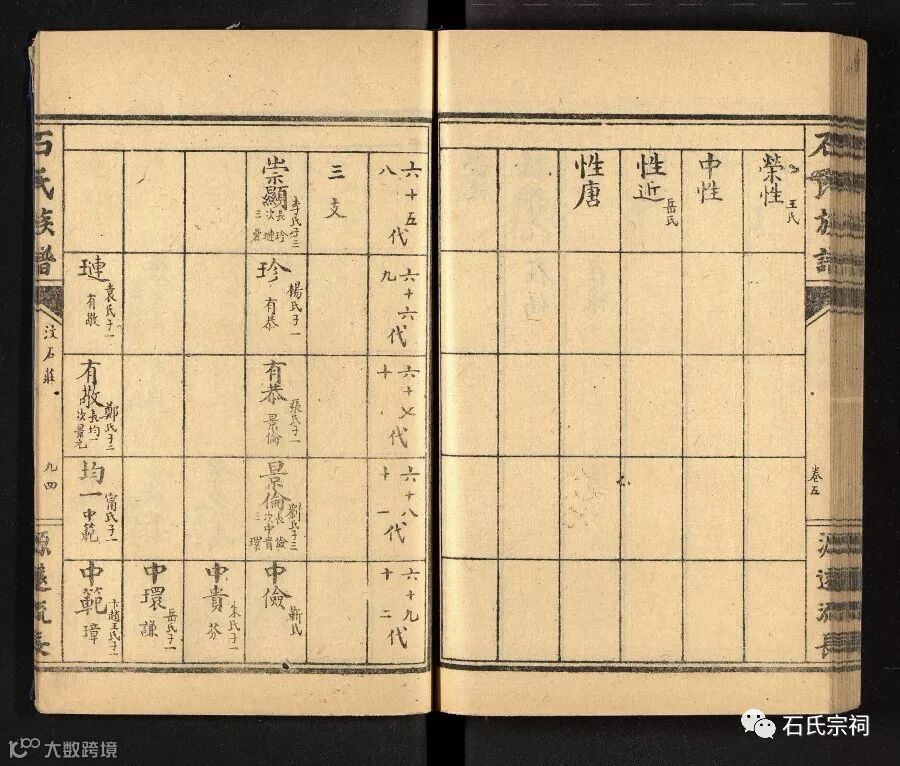 石氏族譜
卷五
源遠流長
榮性
王氏
中性
性近
岳氏
性唐
六十五代
八
三支
崇顯
李氏子三
長珍
次璉
三
六十六代
九
珍
楊氏子一
有恭
璉
袁氏子一
有敬
六十七代
十
有恭
張氏子一
景倫
有敬
鄭氏子二
長均一
次景元
六十八代
十一
景倫
劉氏子三
長儉
次中貴
三環
均一
甯氏子一
中範
六十九代
十二
中儉
靳氏
中貴
朱氏子一
芬
中環
岳氏子一
謙
中範
卞趙王氏子一
璋
石氏族譜
汶石莊
九四
源遠流長
石氏宗祠
大数跨境